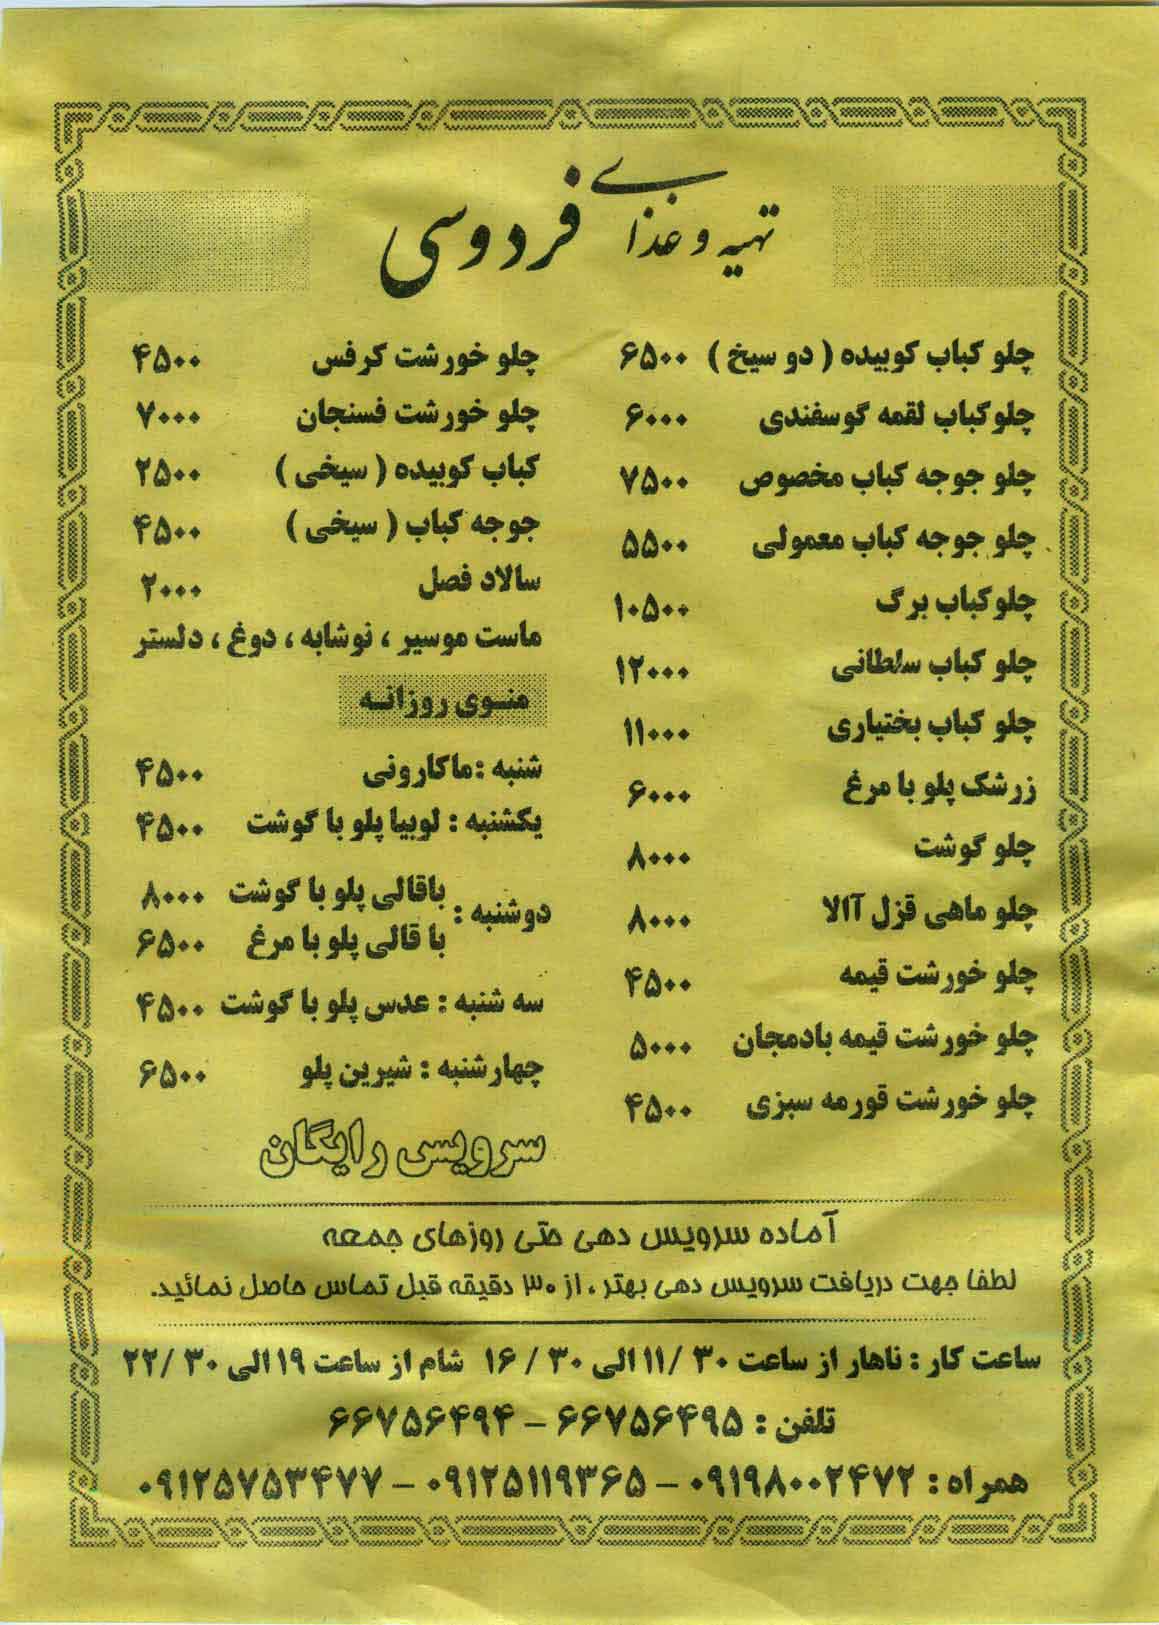 تهیه و غذای فردوسی
چلو کباب کوبیده ( دو سیخ ) ۶۵۰۰
چلوکباب لقمه گوسفندی ۶۰۰۰
چلو جوجه کباب مخصوص ۷۵۰۰
چلو جوجه کباب معمولی ۵۵۰۰
چلوکباب برگ ۱۰۵۰۰
چلو کباب سلطانی ۱۲۰۰۰
چلو کباب بختیاری ۱۱۰۰۰
زرشک پلو با مرغ ۶۰۰۰
چلو گوشت ۸۰۰۰
چلو ماهی قزل آالا ۸۰۰۰
چلو خورشت قیمه ۴۵۰۰
چلو خورشت قیمه بادمجان ۵۰۰۰
چلو خورشت قورمه سبزی ۴۵۰۰
چلو خورشت کرفس ۴۵۰۰
چلو خورشت فسنجان ۷۰۰۰
کباب کوبیده ( سیخی ) ۲۵۰۰
جوجه کباب ( سیخی ) ۴۵۰۰
سالاد فصل ۲۰۰۰
ماست موسیر ، نوشابه ، دوغ ، دلستر
منوی روزانه
شنبه : ماکارونی ۴۵۰۰
یکشنبه : لوبیا پلو با گوشت ۴۵۰۰
دوشنبه : باقالی پلو با گوشت ۸۰۰۰
با قالی پلو با مرغ ۶۵۰۰
سه شنبه : عدس پلو با گوشت ۴۵۰۰
چهارشنبه : شیرین پلو ۶۵۰۰
سرویس رایگان
آماده سرویس دهی حتی روزهای جمعه
لطفا جهت دریافت سرویس دهی بهتر ، از ۳۰ دقیقه قبل تماس حاصل نمائید.
ساعت کار : ناهار از ساعت ۳۰ /۱۱ الی ۳۰ / ۱۶ شام از ساعت ۱۹ الی ۳۰ /۲۲
تلفن : ۶۶۷۵۶۴۹۵ – ۶۶۷۵۶۴۹۴
همراه : ۰۹۱۹۸۰۰۲۴۷۲ – ۰۹۱۲۵۱۱۹۳۶۵ – ۰۹۱۲۵۷۵۳۴۷۷